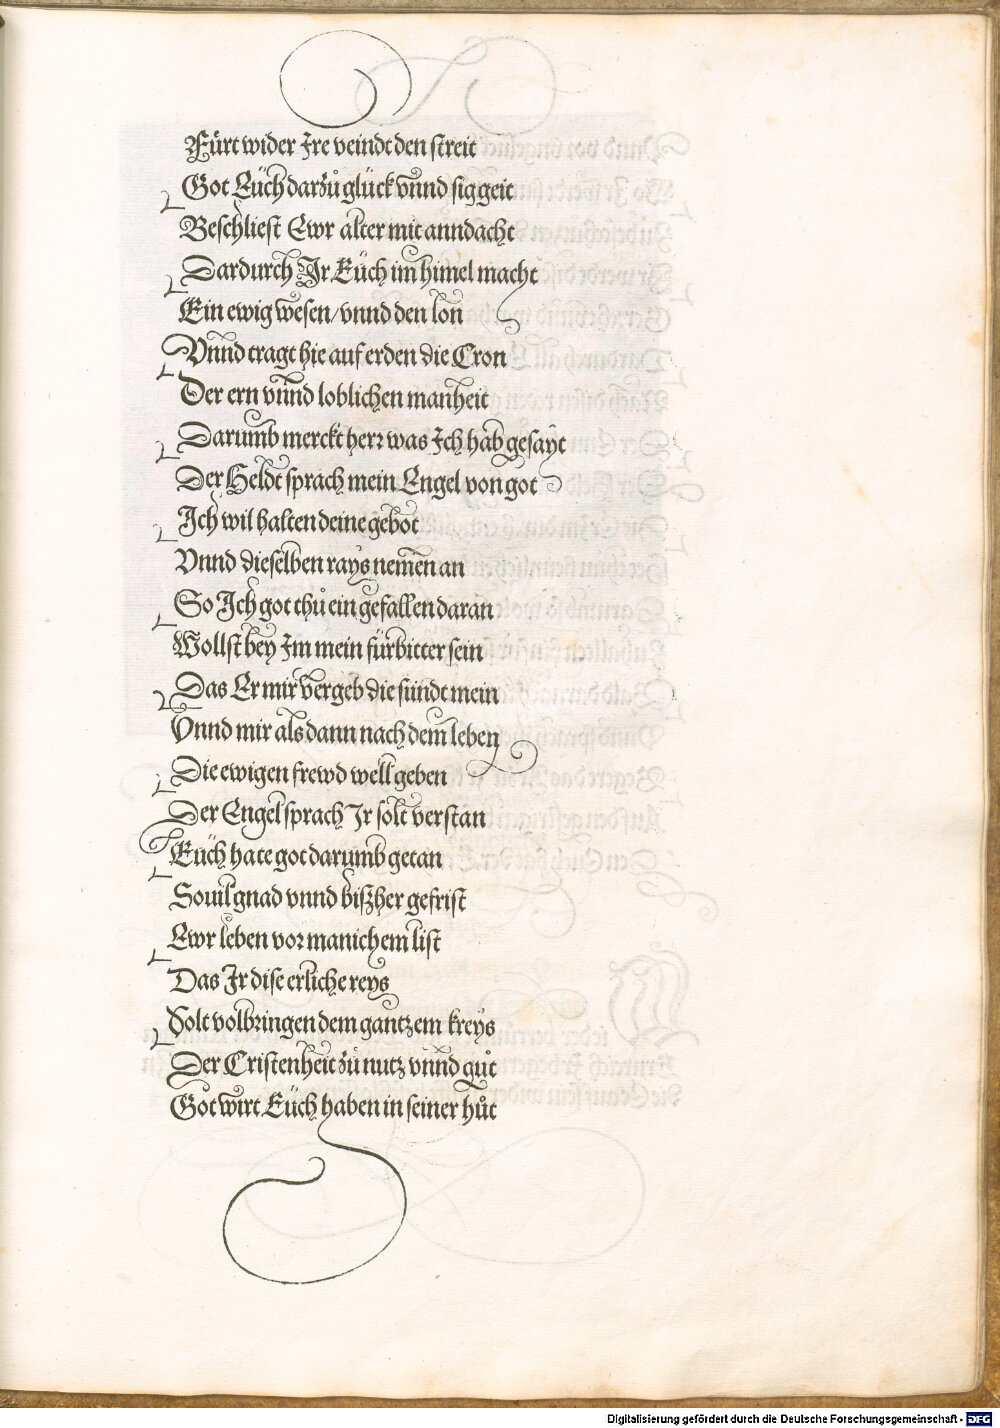 Fürt wider Ire veindt den streit
Got Eüch darzů glück vnnd sig geit
Beschliest Ewr alter mit anndacht
Dardurch Ir Eüch im himel macht
Ein ewig wesen/ vnnd den lon
Vnnd tragt hie auf erden die Cron
Der ern vnnd loblichen manheit
Darumb merckt herr was Ich hab gesaÿt
Der Heldt sprach mein Engel von got
Ich wil halten deine gebot
Vnnd dieselben raÿs nemen an
So Ich got thů ein gefallen daran
Wollst beÿ Im mein fürbitter sein
Das Er mir vergeb die sündt mein
Vnnd mir als dann nach dem leben
Die ewigen frewd well geben
Der Engel sprach Ir solt verstan
Eüch hate got darumb getan
Souil gnad vnnd biszher gefrist
Ewr leben vor manichem list
Das Ir dise erliche reÿs
Solt volbringen dem gantzem kreÿs
Der Cristenheit zů nutz vnnd gůt
Got wirt Eüch haben in seiner hůt
Digitalisierung gefördert durch die Deutsche Forschungsgemeinschaft - DFG